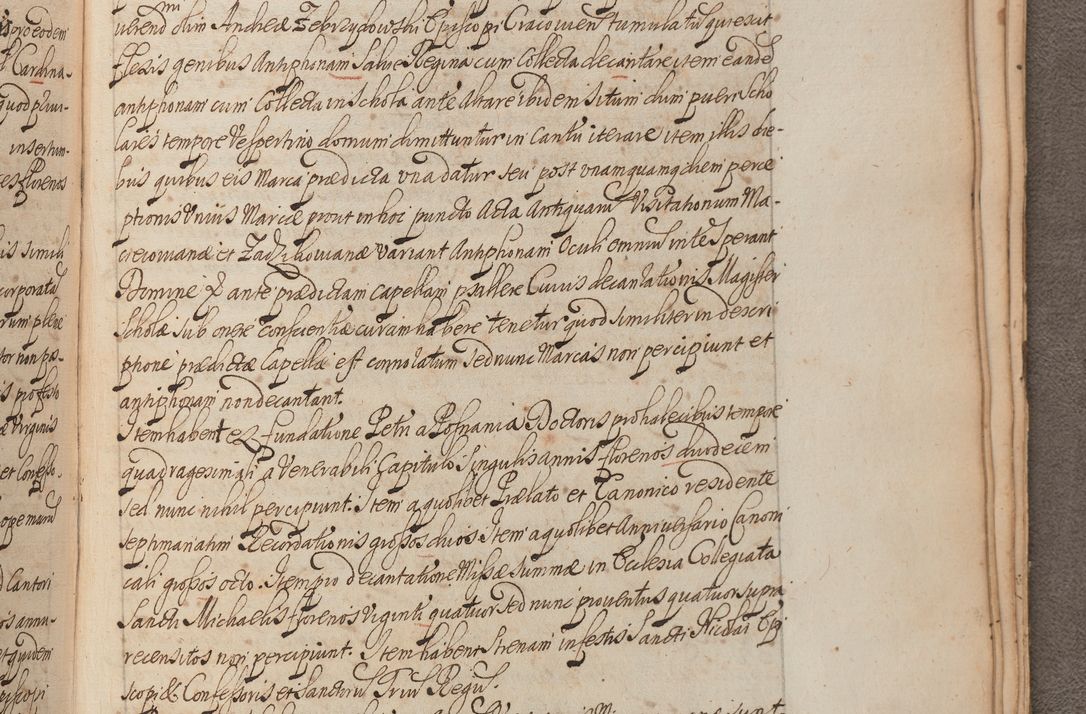 is pro eodem
Cardina-
quod pluri-
insertum
Florenos
is simili
corporata
rum plene
tor non pos-
is professo
æ Virginis
et Confesso-
ope munus
d Cantori
os annu-
et quidem
verend olim Andreæ Zebrzydowski Episcopi Cracovien tumulatus quiescit
flexis genibus Antiphonam Salve Regina cum Collecta decantare item eandē
antiphonam cum Collecta in Schola ante Altare ibidem situm dum pueri Scho
lares tempore Vespertino domum dimittuntur in Cantu iterare item illis die-
bus quibus eis Marca prædicta una datur seu post unamquamqdem perce
ptionis Unius Marcæ prout in hoc puncto Acta Antiquaru Visitationum Ma-
creowianæ et Zadzikowianæ Variant Antiphonam Oculi omnium in te Sperant
Domine & ante prædictam capellam psallere Cuius decantationis Magister
Scholæ sub onere conscientiæ curam habere tenetur quod similiter in descri
ptione prædictæ Capellæ est connotatum sed nunc Marcas non percipiunt et
antiphonam non decantant.
Item habent ex fundatione Petri a Posnania Doctoris pro halecibus tempore
quadragesimali a Venerabili Capitulo singulis annis florenos duodecim
sed nunc nihil percipiunt. Item a quolibet Prælato et Canonico residente
septimanatim Recordationis grossos duos Item a quolibet Anniversario Canoni
cali grossos octo. Item pro decantatione Missæ summæ in Ecclesia Colegiata
Sancti Michaelis florenos viginti quatuor sed nunc proventus quatuor supra
recensitos non percipiunt. Item habent strenam in festis Sancti Nicolai Epi
scopi & Confessoris et Sanctrus Trius Regus.